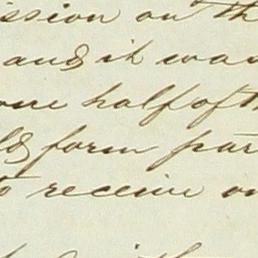 ission on th
and it was
one half of th
ld form par
to receive on